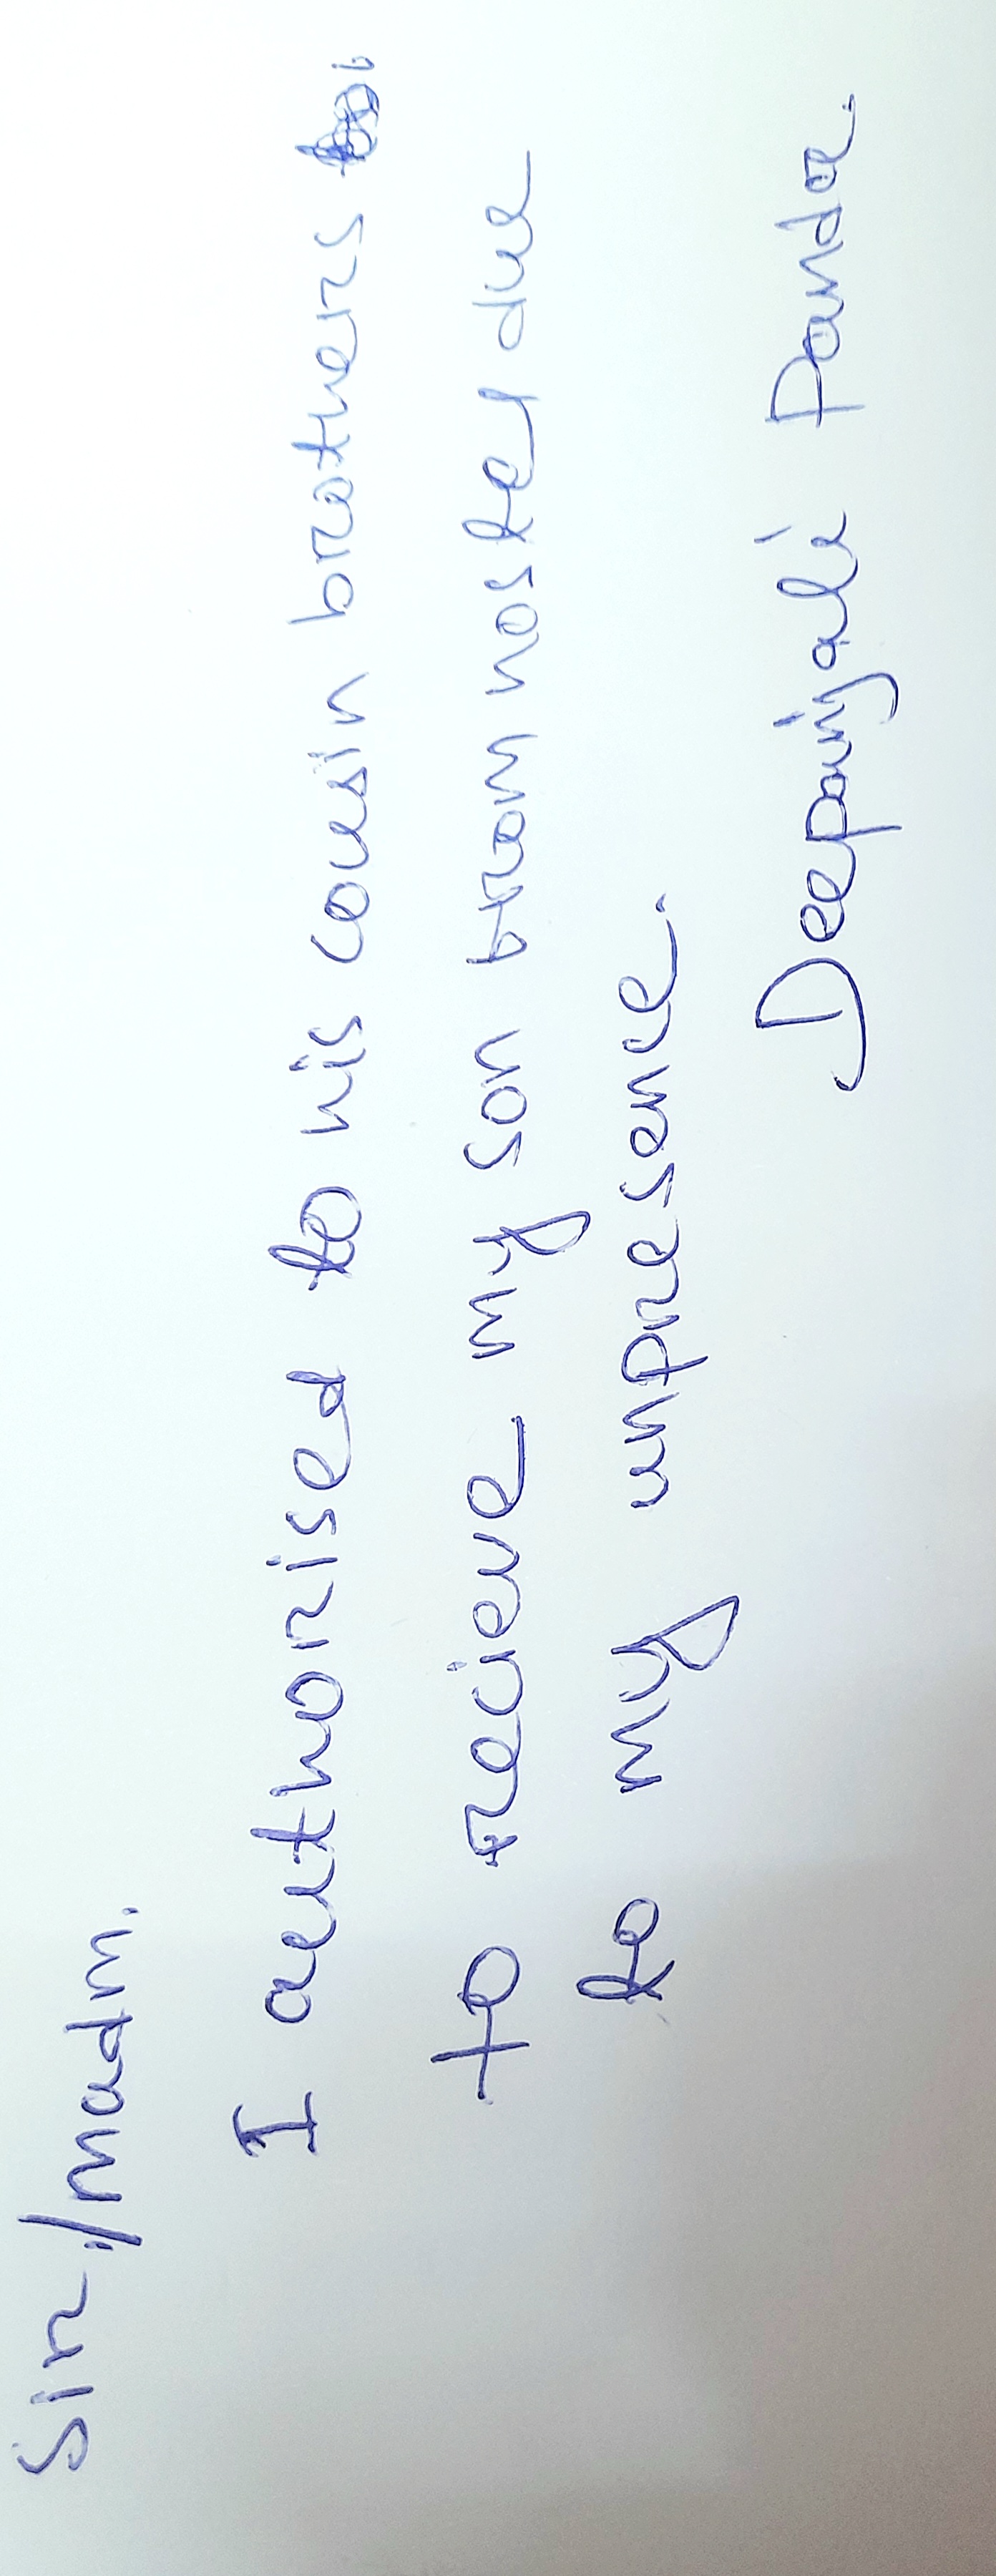 Sir,/madm.
I authorised to his cousin brothers
to recieve my son from hostel due
to my unpresense.
Deepanjali Panda.